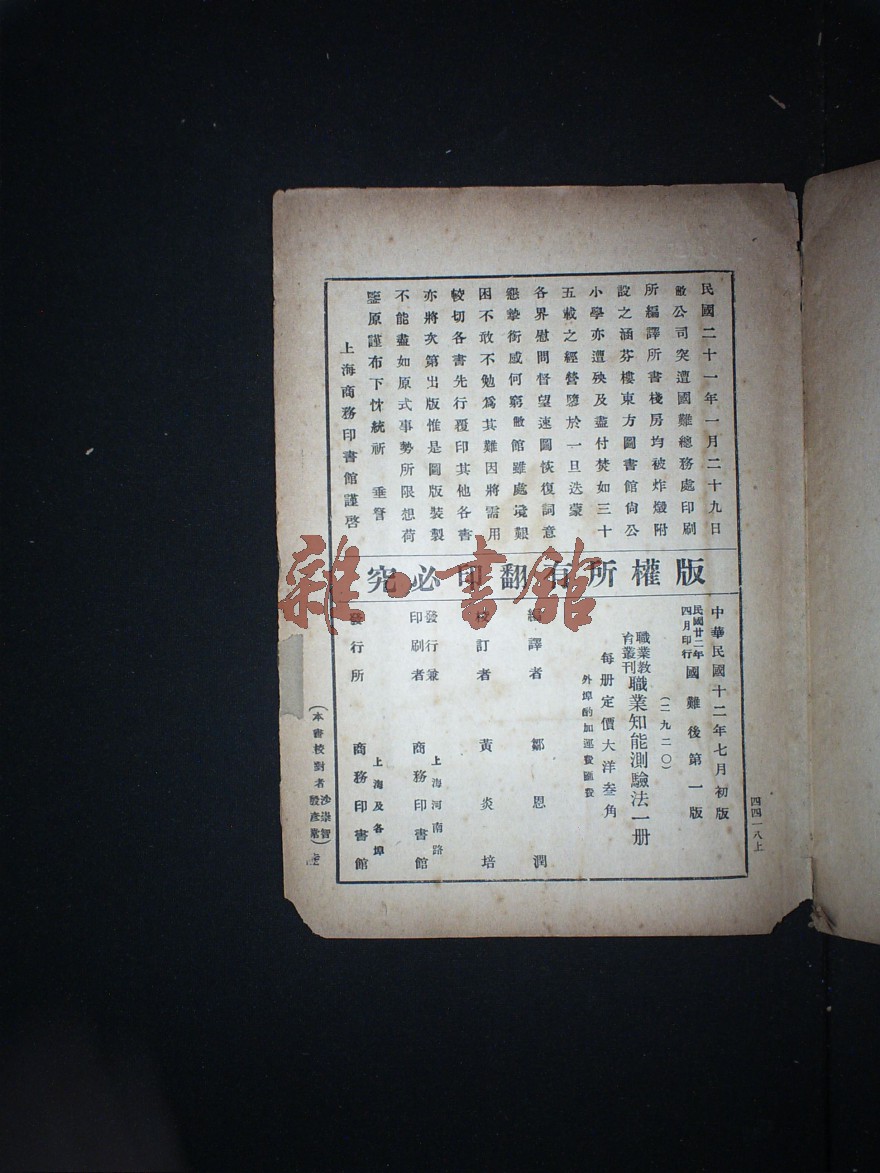 民國二十一年一月二十九日
敝公司突遭國難總務處印刷
所編譯所書棧房均被炸燬附
設之涵芬樓東方圖書館尙公
小學亦遭殃及盡付焚如三十
五載之經營隳於一旦迭蒙
各界慰問督望速圖恢復詞意
懇摯銜感何窮敝館雖處境艱
困不敢不勉爲其難因將需用
較切各書先行覆印其他各書
亦將次第出版惟是圖版裝製
不能盡如原式事勢所限想荷
鑒原謹布下忱統祈　垂詧
上海商務印書館謹啓
版權所有翻印必究
中華民國十二年七月初版
民國廿二年四月印行 國難後第一版
(二九二〇)
職業教育叢刊 職業知能測驗法一册
每册定價大洋叁角
外埠酌加運費匯費
編譯者　鄒恩潤
校訂者　黃炎培
發行兼印刷者　上海河南路 商務印書館
發行所　上海及各埠 商務印書館
(本書校對者 沙崇智
四四一八上
雜·書館